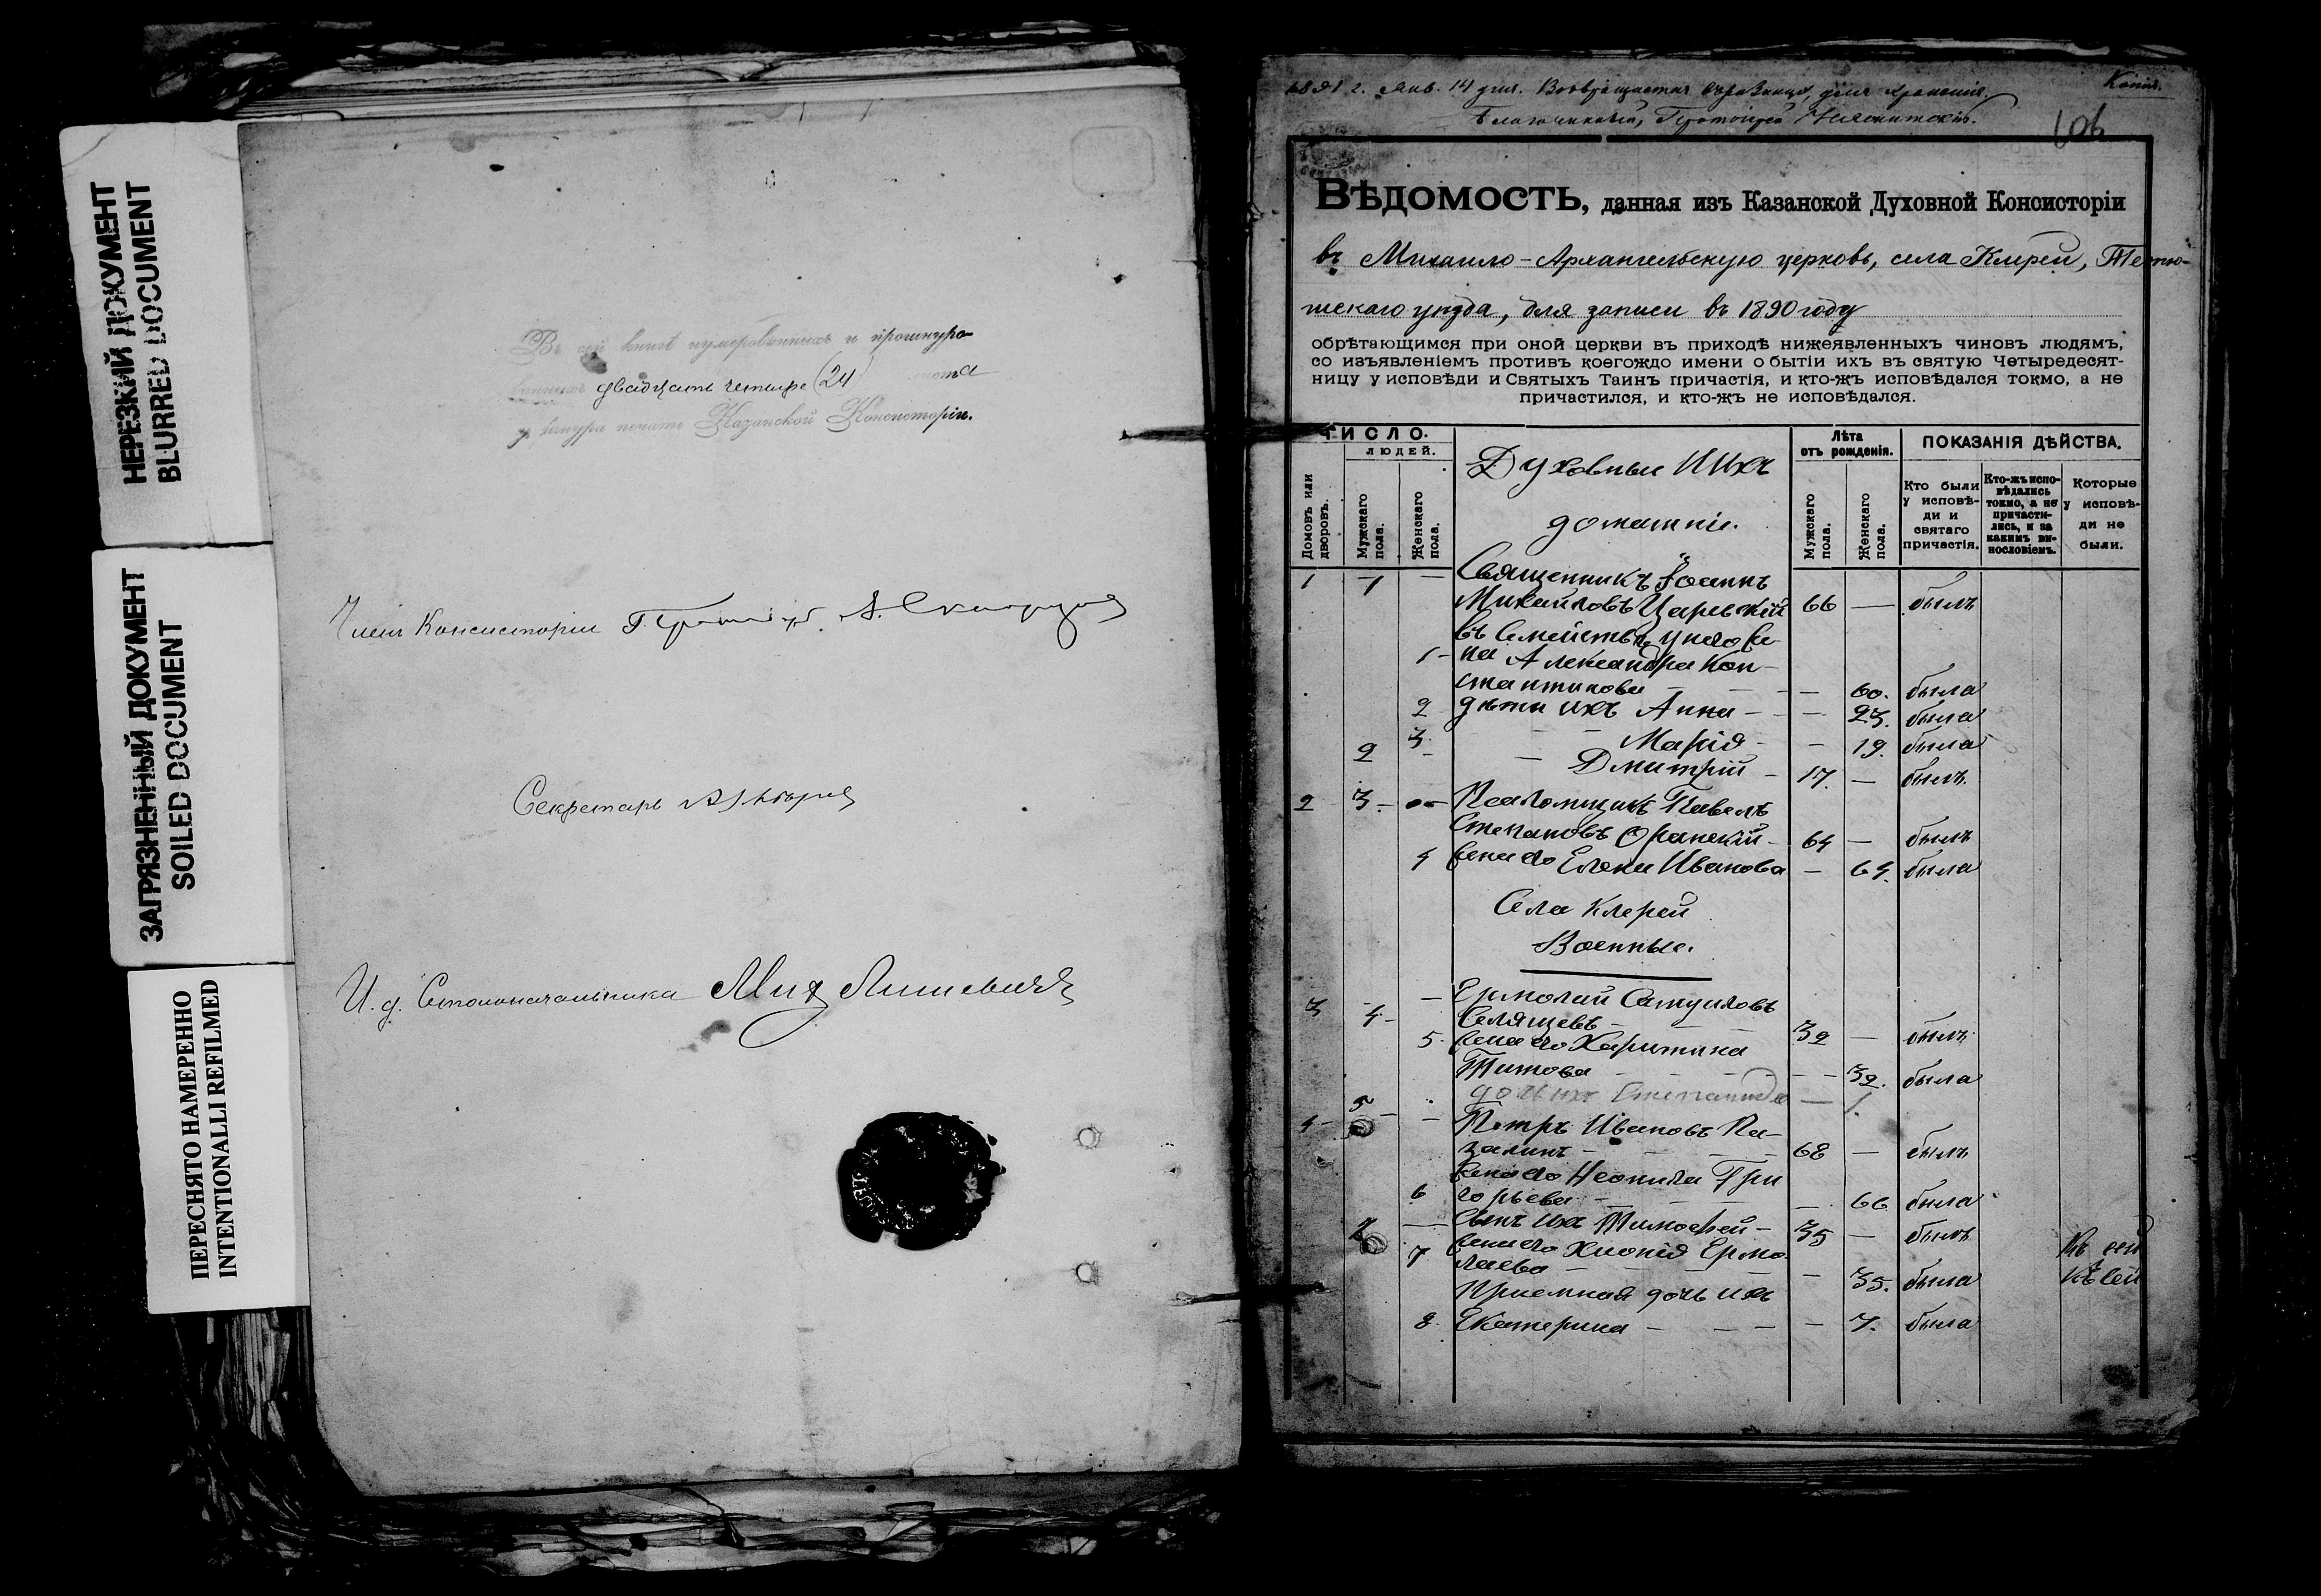 НЕРЕЗКИЙ ДОКУМЕНТ
BLURRED DOCUMENT
ЗАГРЯЗНЕННЫЙ ДОКУМЕНТ
SOILED DOCUMENT
ПЕРЕСНЯТО НАМЕРЕННО
INTENTIONALLI REFILMED
Въ сей книгѣ нумерованныхъ и прошнуро-
ванныхъ двадцать четыре (24) листа
у шнура печать Казанской Консисторіи.
Членъ Консисторіи
Секретарь
И. д. Столоначальника
1891 г. Янв. 14 дня. Возвращается для храненія.
Копія.
Благочинный, Протоіерей
106
ВѢДОМОСТЬ, данная изъ Казанской Духовной Консисторіи
въ Михаило-Архангельскую церковь, села Клерей, Тетю-
шскаго уѣзда, для записи въ 1890 году
обрѣтающимся при оной церкви въ приходѣ нижеявленныхъ чиновъ людямъ,
со изъявленіемъ противъ коегождо имени о бытіи ихъ въ святую Четыредесят-
ницу у исповѣди и Святыхъ Таинъ причастія, и кто-жъ исповѣдался токмо, а не
причастился, и кто-жъ не исповѣдался.
ЧИСЛО.
ЛЮДЕЙ.
Домовъ или дворовъ.
Мужскаго пола.
Женскаго пола.
Духовные и ихъ
домашніе.
Лѣта отъ рожденія.
Мужскаго пола.
Женскаго пола.
ПОКАЗАНІЯ ДѢЙСТВА.
Кто были у исповѣ-ди и святаго причастія.
Кто-жъ испо-вѣдались токмо, а не причасти-лись, и за какимъ ви-нословіемъ.
Которые у исповѣ-ди не были.
1 1 — Священникъ Іоаннъ
Михайловъ Царевскій 66 — былъ
въ семействѣ у него же-
1 - на Александра Кон-
стантинова — 60. была
2 дѣти ихъ Анна — 23. была
3. Марія — 19. была
2 — Дмитрій 17. — былъ
2 3 — Псаломщикъ Павелъ
Степановъ Оранскій 64 — былъ
4 жена его Елена Иванова — 64. была
Села Клерей
Военные.
3 4 — Ермолай Самуиловъ
Селящевъ 32 — былъ
5. жена его Харитина
Титова — 32. была
дочь ихъ Степанида — 1.
4 5 — Петръ Ивановъ Ка-
залинъ 68 — былъ
жена его Неонила Гри
6 горьева — 66 была
— сынъ ихъ Тимофей 35 — былъ
7 жена его Хіонія Ермо
лаева — 35. была
Пріемная дочь ихъ
8. Екатерина — 7. была